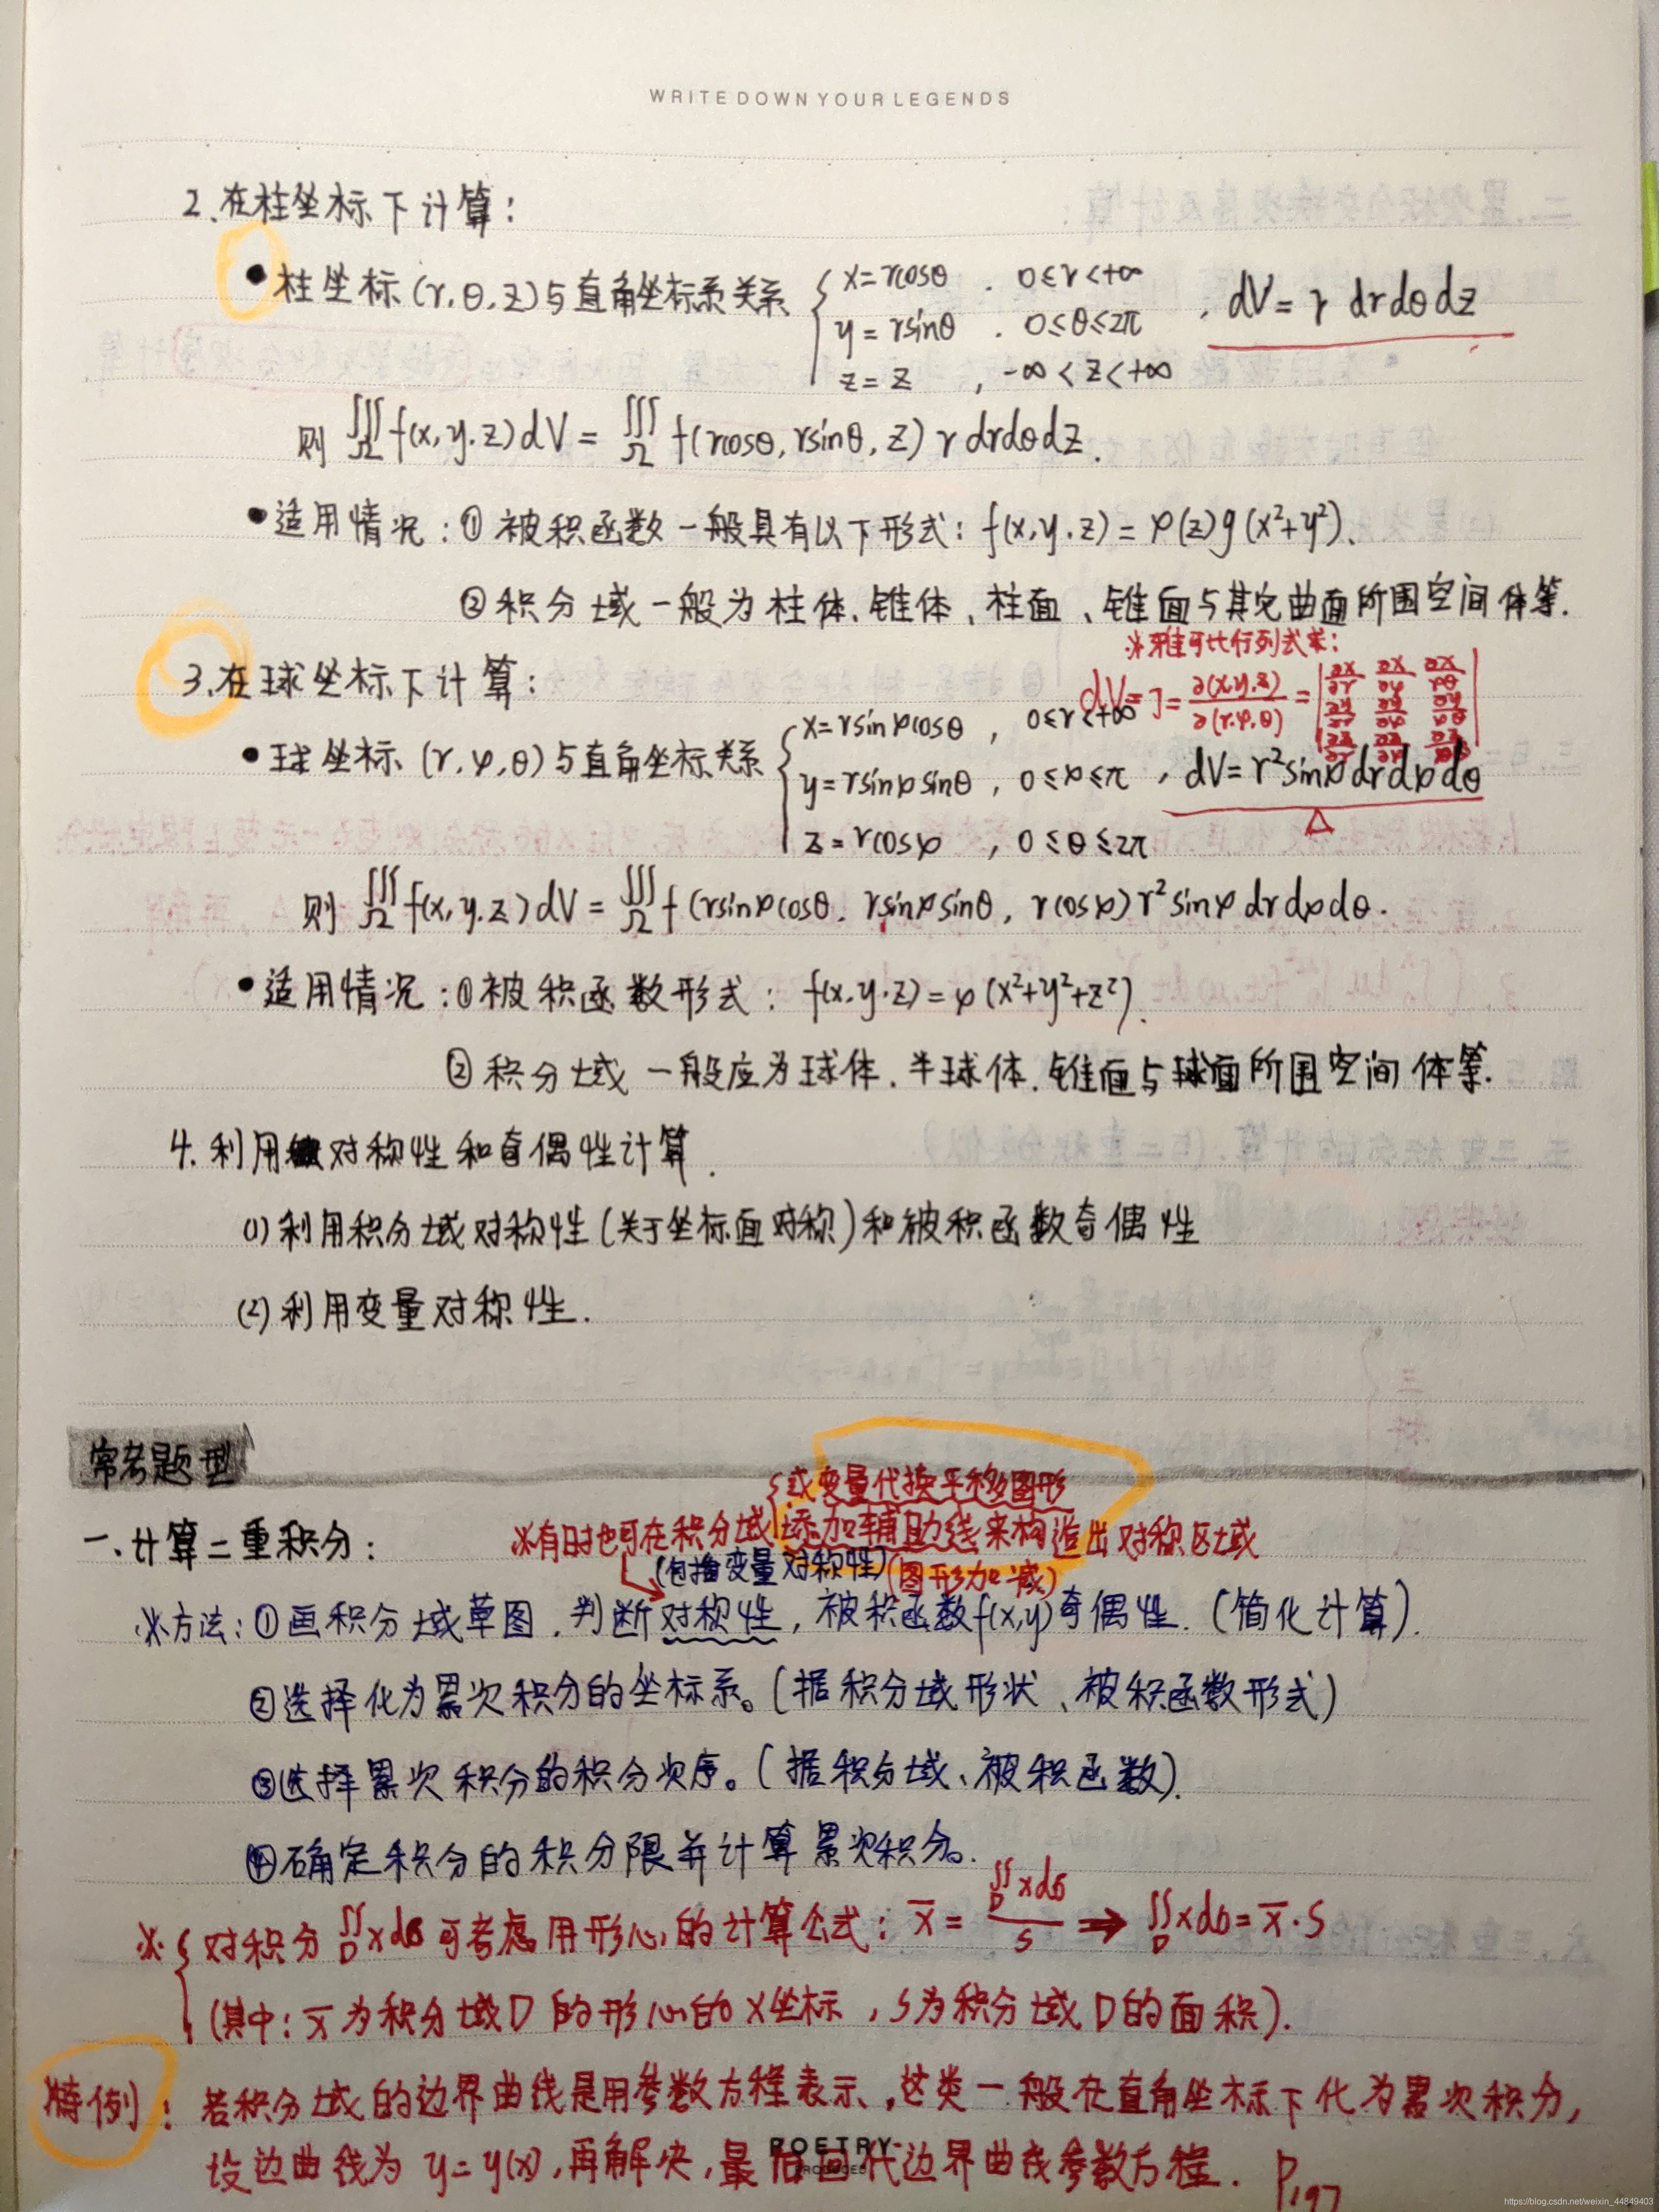 WRITE DOWN YOUR LEGENDS
2.在柱坐标下计算:
•柱坐标(r,θ,z)与直角坐标系关系 { x=rcosθ . 0≤r<+∞
y=rsinθ . 0≤θ≤2π , dV=r drdθdz
z=z , -∞<z<+∞
则 ∭Ω f(x,y.z)dV = ∭Ω f(rcosθ,rsinθ,z) r drdθdz.
•适用情况:① 被积函数一般具有以下形式: f(x,y.z)=φ(z)g(x²+y²).
②积分域一般为柱体、锥体、柱面、锥面与其它曲面所围空间体等.
※雅可比行列式求:
3.在球坐标下计算:
dV= J= ∂(x,y,z)/∂(r.φ,θ) =
•球坐标(r,φ,θ)与直角坐标关系 { x=rsinφcosθ , 0≤r<+∞
y=rsinφsinθ , 0≤φ≤π , dV=r²sinφdrdφdθ
z=rcosφ , 0≤θ≤2π
则 ∭Ω f(x,y.z)dV = ∭Ω f(rsinφcosθ. rsinφsinθ, rcosφ) r²sinφ drdφdθ.
•适用情况:①被积函数形式: f(x.y.z)=φ(x²+y²+z²).
②积分域一般应为球体.半球体.锥面与球面所围空间体等.
4.利用对称性和奇偶性计算.
(1)利用积分域对称性(关于坐标面对称)和被积函数奇偶性
(2)利用变量对称性.
常考题型
或变量代换平移图形
一.计算二重积分:
※有时也可在积分域添加辅助线来构造出对称区域
(包括变量对称性)(图形加减)
※方法:①画积分域草图.判断对称性,被积函数f(x,y)奇偶性.(简化计算).
②选择化为累次积分的坐标系。(据积分域形状、被积函数形式)
③选择累次积分的积分次序。(据积分域、被积函数).
④确定积分的积分限并计算累次积分。
※{对积分∬D xdσ可考虑用形心的计算公式: x̄=∬D xdσ/S ⇒ ∬D xdσ=x̄·S
(其中:x̄为积分域D的形心的x坐标,S为积分域D的面积).
特例:若积分域的边界曲线是用参数方程表示,这类一般在直角坐标下化为累次积分,
设边曲线为y=y(x),再解决,最后回代边界曲线参数方程. P197
POETRY
https://blog.csdn.net/weixin_44849403